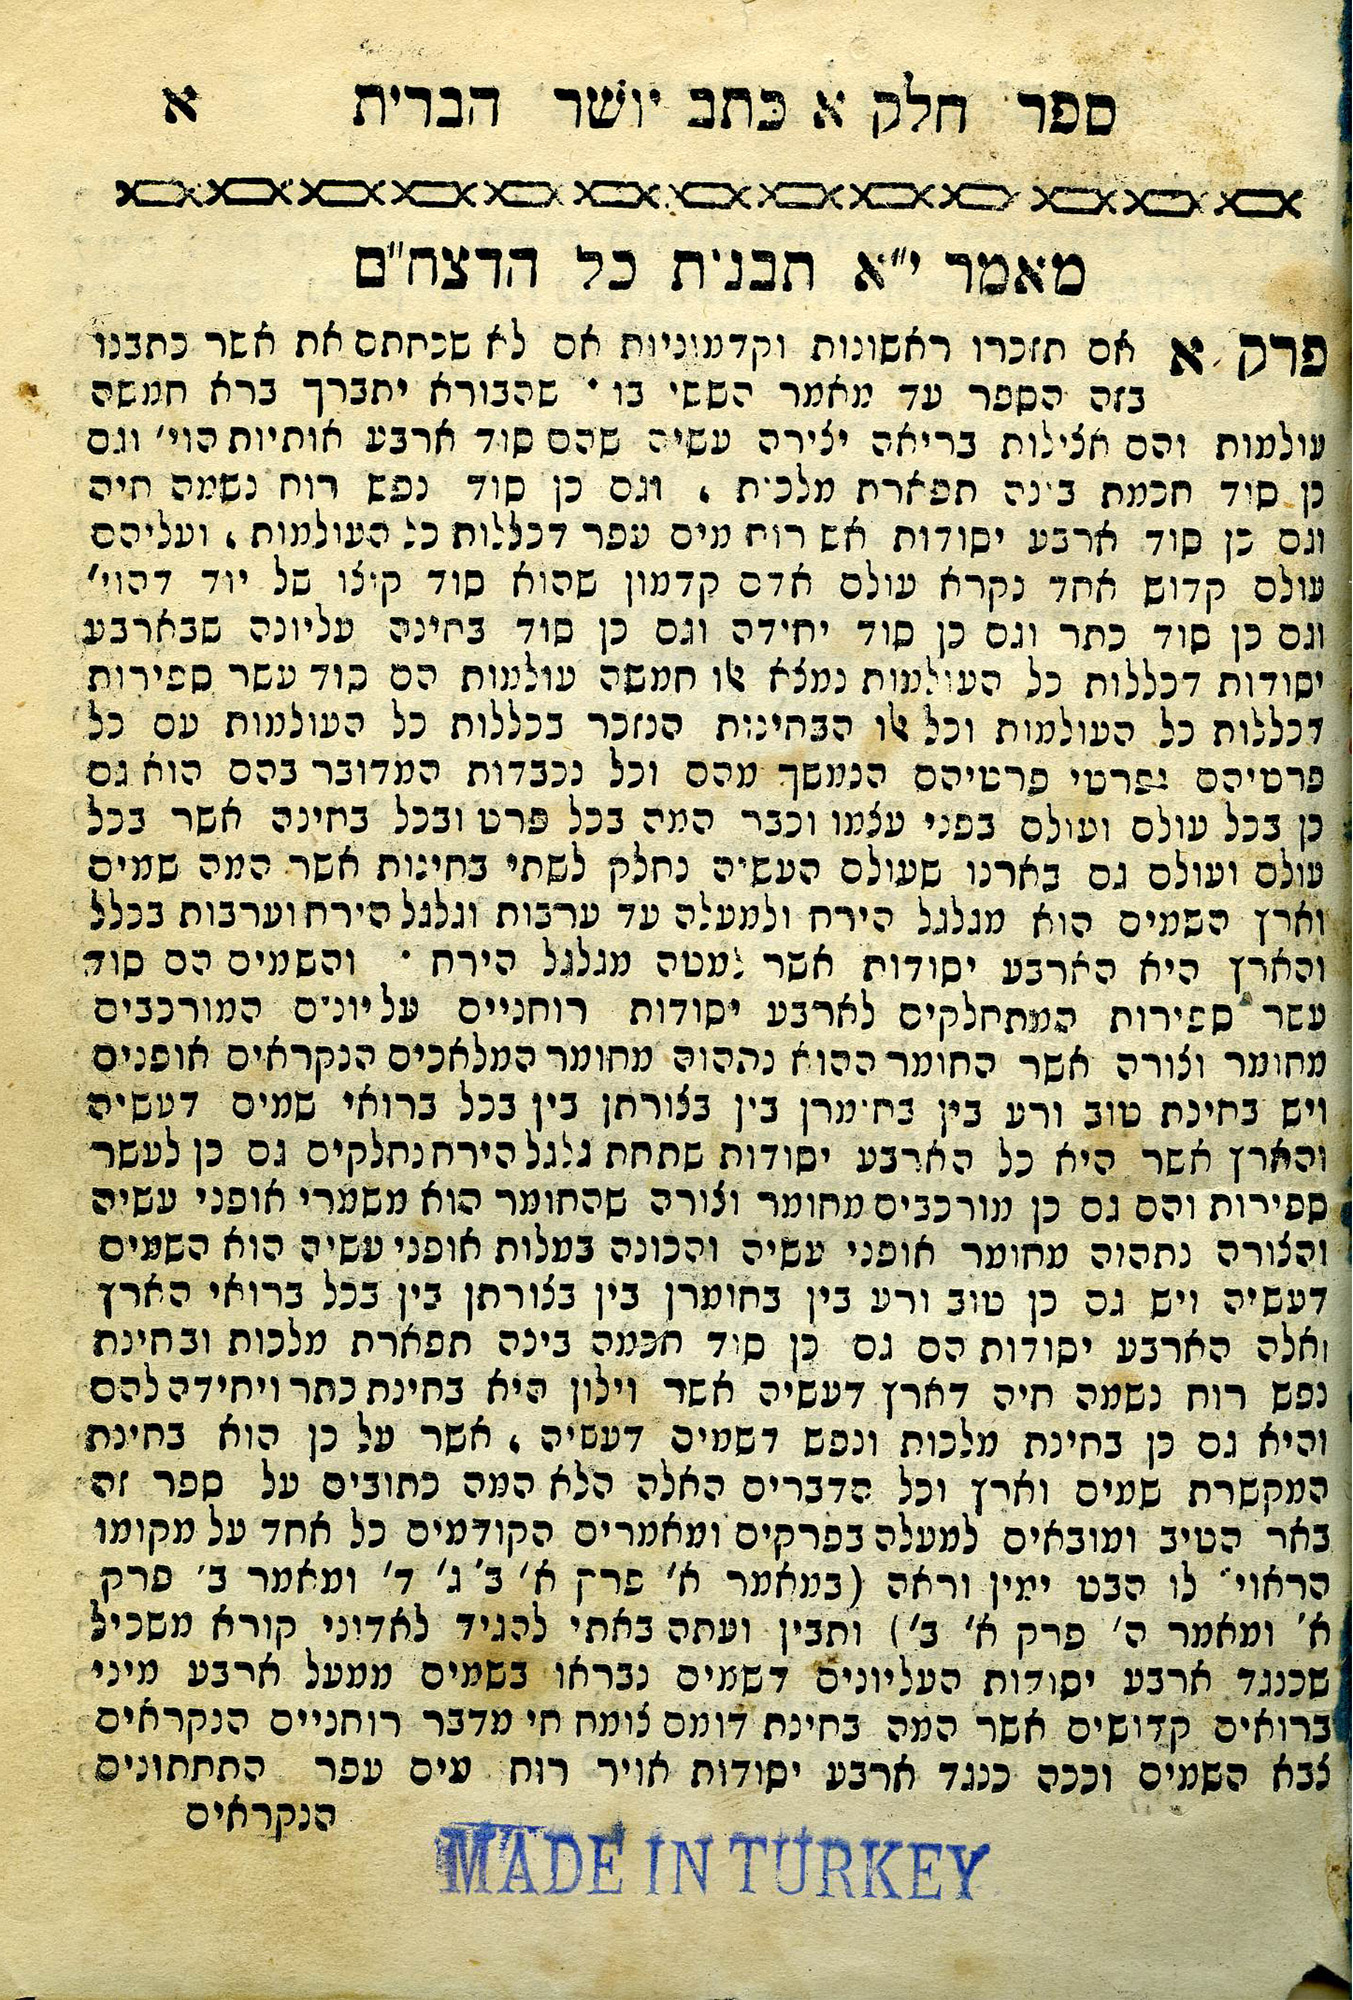 ספר חלק א כתב יושר הברית א
מאמר י"א תבנית כל הדצח"ם
פרק א אם תזכרו ראשונות וקדמוניות אם לא שכחתם את אשר כתבנו
בזה הספר עד מאמר הששי בו · שהבורא יתברך ברא חמשה
עולמות והם אצילות בריאה יצירה עשיה שהם סוד ארבע אותיות הוי' וגם
כן סוד חכמת בינה תפארת מלכית , וגם כן סוד נפש רוח נשמה חיה
וגם כן סוד ארבע יסודות אש רוח מים עפר דכללות כל העולמות , ועליהם
עולם קדוש אחד נקרא עולם אדם קדמון שהוא סוד קוצו של יוד דהוי'
וגם כן סוד כתר וגם כן סוד יחידה וגם כן סוד בחינה עליונה שבארבע
יסודות דכללות כל העולמות נמצא אלו חמשה עולמות הם סוד עשר ספירות
דכללות כל העולמות וכל אלו הבחינות הנזכר בכללות כל העולמות עם כל
פרטיהם ופרטי פרטיהם הנמשך מהם וכל נכבדות המדובר בהם הוא גם
כן בכל עולם ועולם בפני עצמו וכבר המה בכל פרט ובכל בחינה אשר בכל
עולם ועולם גם בארנו שעולם העשיה נחלק לשתי בחינות אשר המה שמים
וארץ השמים הוא מגלגל הירח ולמעלה עד ערבות וגלגל הירח וערבות בכלל
והארץ היא הארבע יסודות אשר למטה מגלגל הירח · והשמים הם סוד
עשר ספירות המתחלקים לארבע יסודות רוחניים עליונים המורכבים
מחומר וצורה אשר החומר ההוא נההוה מחומר המלאכים הנקראים אופנים
ויש בחינת טוב ורע בין בחומרן בין בצורתן בין בכל ברואי שמים דעשיה
והארץ אשר היא כל הארבע יסודות שתחת גלגל הירח נחלקים גם כן לעשר
ספירות והם גם כן מורכבים מחומר וצורה שהחומר הוא משמרי אופני עשיה
והצורה נתהוה מחומר אופני עשיה והכונה במלות אופני עשיה הוא השמים
דעשיה ויש גם כן טוב ורע בין בחומרן בין בצורתן בין בכל ברואי הארץ
ואלה הארבע יסודות הם גם כן סוד חכמה בינה תפארת מלכות ובחינת
נפש רוח נשמה חיה דארץ דעשיה אשר וילון היא בחינת כתר ויחידה להם
והיא גם כן בחינת מלכות ונפש דשמיה דעשיה , אשר על כן הוא בחינת
המקשרת שמים וארץ וכל הדברים האלה הלא המה כתובים על ספר זה
באר הטיב ומובאים למעלה בפרקים ומאמרים הקודמים כל אחד על מקומו
הראוי לו הבט ימין וראה (במאמר א' פרק א' ב' ג' ד' ומאמר ב' פרק
א' ומאמר ה' פרק א' ב') ותבין ועתה באתי להגיד לאדוני קורא משכיל
שכנגד ארבע יסודות העליונים דשמים נבראו בשמים ממעל ארבע מיני
ברואים קדושים אשר המה בחינת דומם צומח חי מדבר רוחניים הנקראים
צבא השמים וככה כנגד ארבע יסודות אויר רוח מים עפר התחתונים
הנקראים
MADE IN TURKEY